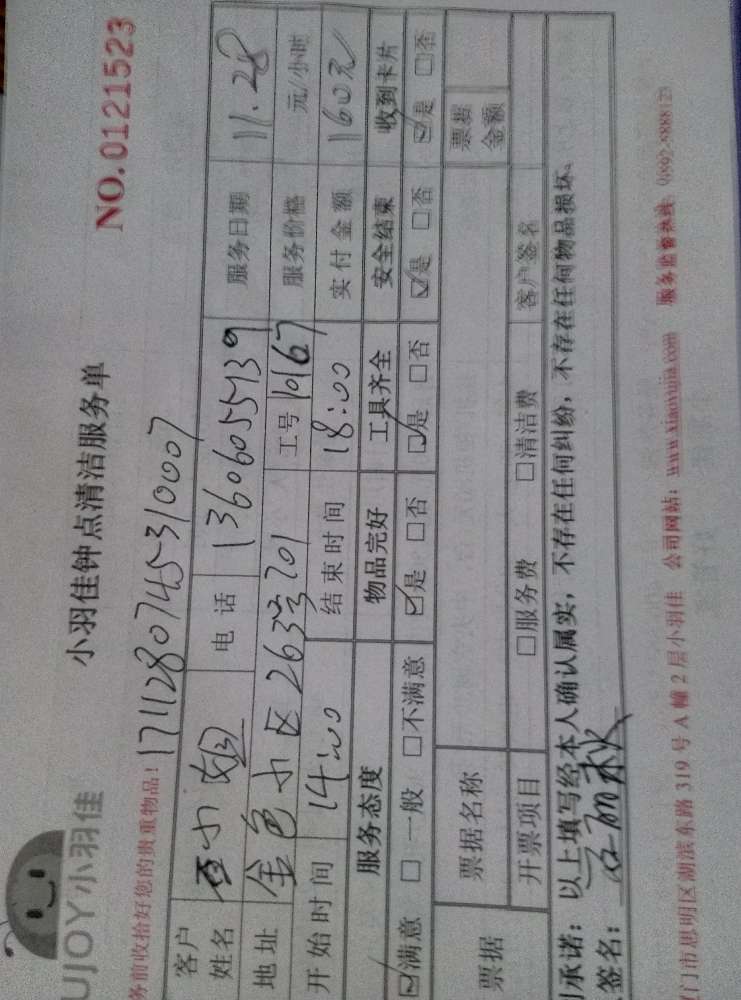 UJOY小羽佳
小羽佳钟点清洁服务单
NO.0121523
务前收拾好您的贵重物品！ 1711280745310007
客户姓名 小姐 电话 13606055139 服务日期 11.28
地址 金色小区263号701 工号 10167 服务价格 元/小时
开始时间 14:00 结束时间 18:00 实付金额 160元
服务态度 物品完好 工具齐全 安全结束 收到卡片
☑满意 □一般 □不满意 ☑是 □否 ☑是 □否 ☑是 □否 ☑是 □否
票据 票据名称 票据金额
开票项目 □服务费 □清洁费 客户签名
承诺：以上填写经本人确认属实，不存在任何纠纷，不存在任何物品损坏。
签名：
门市思明区湖滨东路319号A幢2层小羽佳 公司网站：www.xiaoyujia.com 服务监督热线：